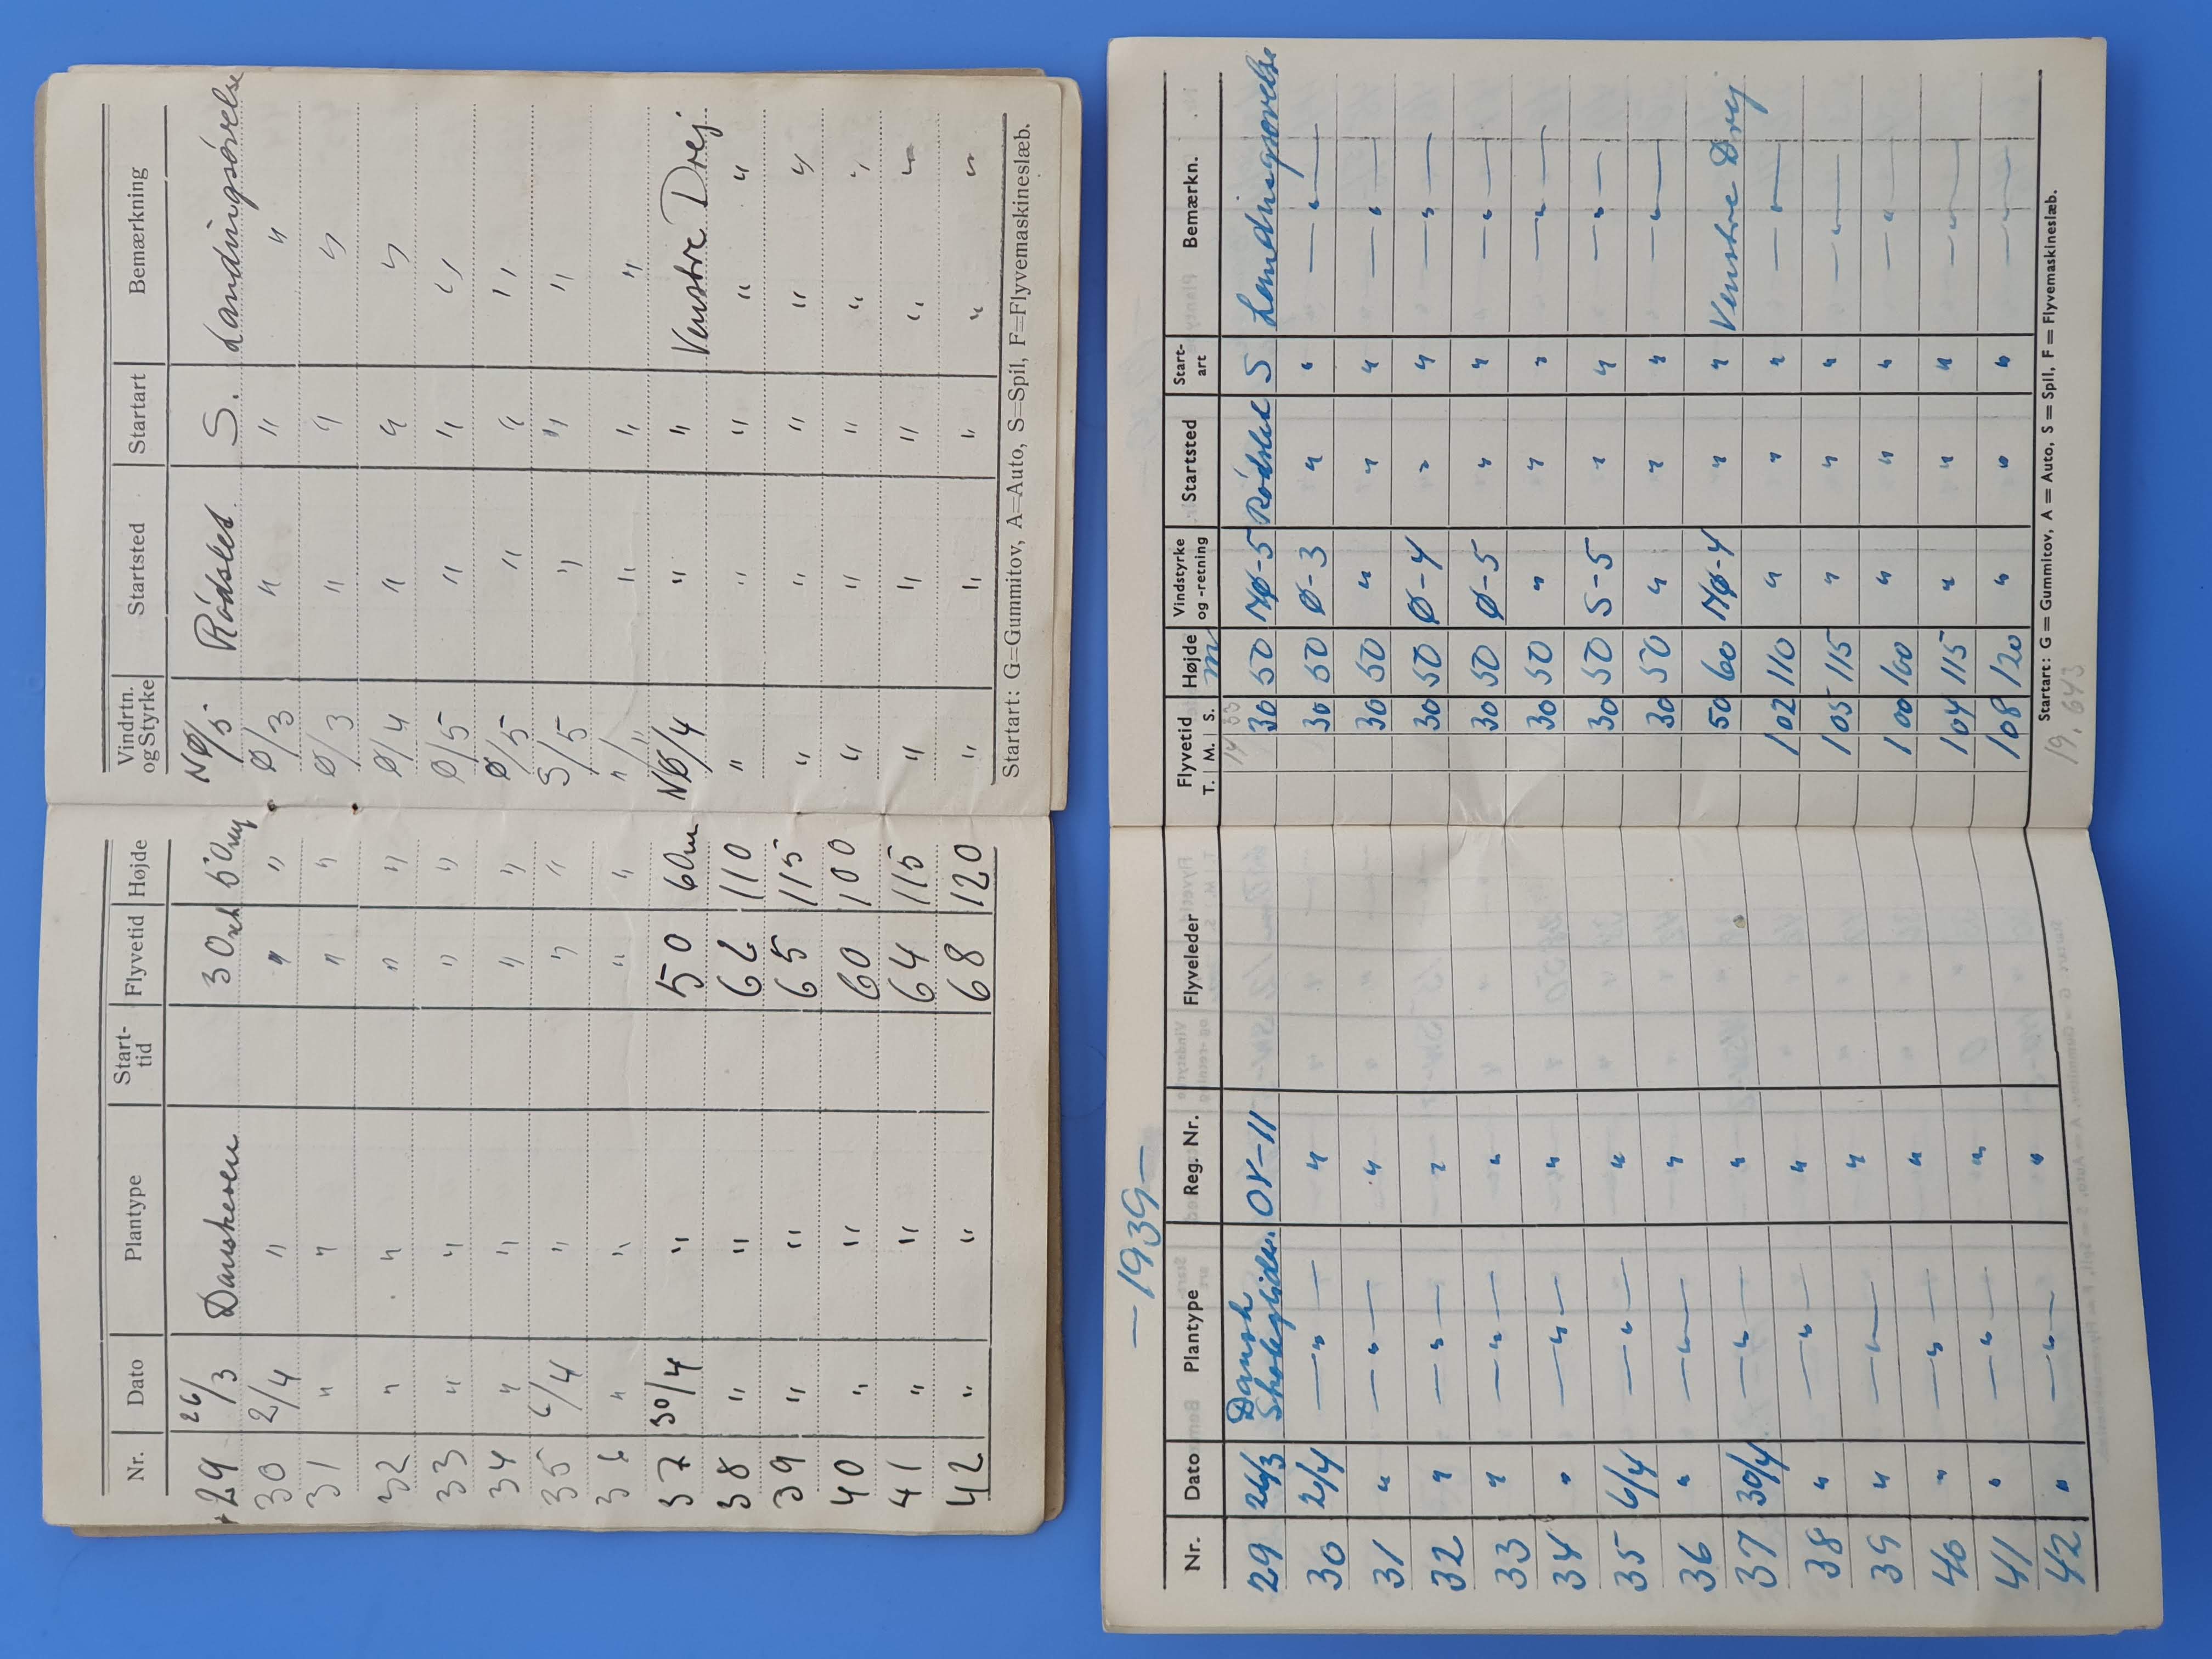 Nr. Dato Plantype Start-tid Flyvetid Højde Vindrtn. og Styrke Startsted Startart Bemærkning
29 26/3 Danskeren 30 sek 50 m NØ/5 Rødslet S. Landingsøvelse
30 2/4 " " " Ø/3 " " "
31 " " " " Ø/3 " " "
32 " " " " Ø/4 " " "
33 " " " " Ø/5 " " "
34 " " " " Ø/5 " " "
35 6/4 " " " S/5 " " "
36 " " " " " / " " " "
37 30/4 " 50 60 m NØ/4 " " Venstre Drej.
38 " " 62 110 " " " " "
39 " " 65 115 " " " " "
40 " " 60 100 " " " " "
41 " " 64 115 " " " " "
42 " " 68 120 " " " " "
Startart: G=Gummitov, A=Auto, S=Spil, F=Flyvemaskineslæb.
— 1939 —
Nr. Dato Plantype Reg. Nr. Flyveleder Flyvetid T. M. S. Højde m Vindstyrke og -retning Startsted Start-art Bemærkn.
14 33
29 26/3 Dansk Skoleglider. OY-11 30 50 NØ-5 Rødslet S Landingsøvelse
30 2/4 — " — " 30 50 Ø-3 " " — " —
31 " — " — " 30 50 " " " — " —
32 " — " — " 30 50 Ø-4 " " — " —
33 " — " — " 30 50 Ø-5 " " — " —
34 " — " — " 30 50 " " " — " —
35 6/4 — " — " 30 50 S-5 " " — " —
36 " — " — " 30 50 " " " — " —
37 30/4 — " — " 50 60 NØ-4 " " Venstre Drej
38 " — " — " 1 02 110 " " " — " —
39 " — " — " 1 05 115 " " " — " —
40 " — " — " 1 00 100 " " " — " —
41 " — " — " 1 04 115 " " " — " —
42 " — " — " 1 08 120 " " " — " —
Startart: G = Gummitov, A = Auto, S = Spil, F = Flyvemaskineslæb.
19. 643